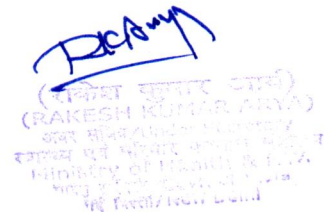 RKArya
(राकेश कुमार आर्य)
(RAKESH KUMAR ARYA)
अवर सचिव/Under Secretary
स्वास्थ्य एवं परिवार कल्याण
Ministry of Health & F.W.
Govt. of India
नई दिल्ली/New Delhi